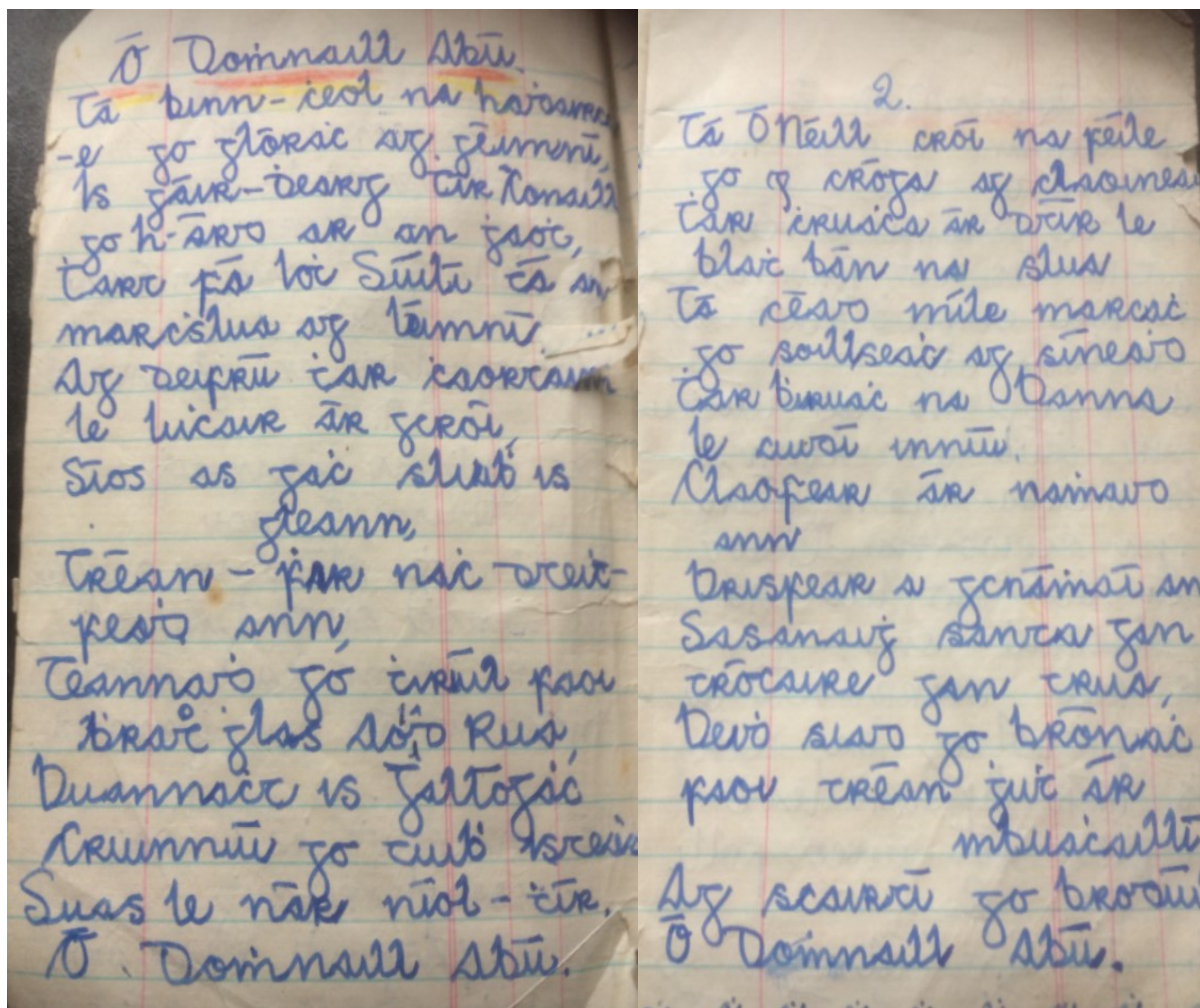 Ó Doṁnaill Abú.
Tá binn-ċeol na hadarca
-e go glóraċ ag géimní,
Is gáir-ḋearg Ṫír Ċonaill
go h-árd ar an ġaoiṫ,
Ṫart fá loċ Súilí tá an
marcṡlua ag léimní
Ag deifrú ṫar ċaorṫainn
le lúṫair ár gcroí,
Síos as gaċ sliaḃ is
gleann,
Tréan-ḟir naċ dteiṫ-
feaḋ ann,
Teannaiḋ go ciúil faoi
ḃrat ġlas Aoḋ Rua,
Buannaċt is Ġallóglaċ
Cruinniú go tiuḃ isteaċ
Suas le nár níol-ṫír,
Ó Doṁnaill Abú.
2.
Tá Ó Néill croí na féile
go cróga ag claoineaḋ
Ṫar ċruaċa ár dtír le
blaiṫ bán na slua
Tá céad míle marcaċ
go soillseaċ ag síneaḋ
Ṫar ḃruaċ na Banna
le cuidí inniu.
Claoifear ár naṁaid
ann
Brisfear a gcnáṁaí an
Sasanaiġ santa gan
trócaire gan trua,
Beiḋ siad go brónaċ
faoi tréan ġuiṫ ár
mbuaċaillí
Ag scairtí go bródúil
Ó Doṁnaill Abú.